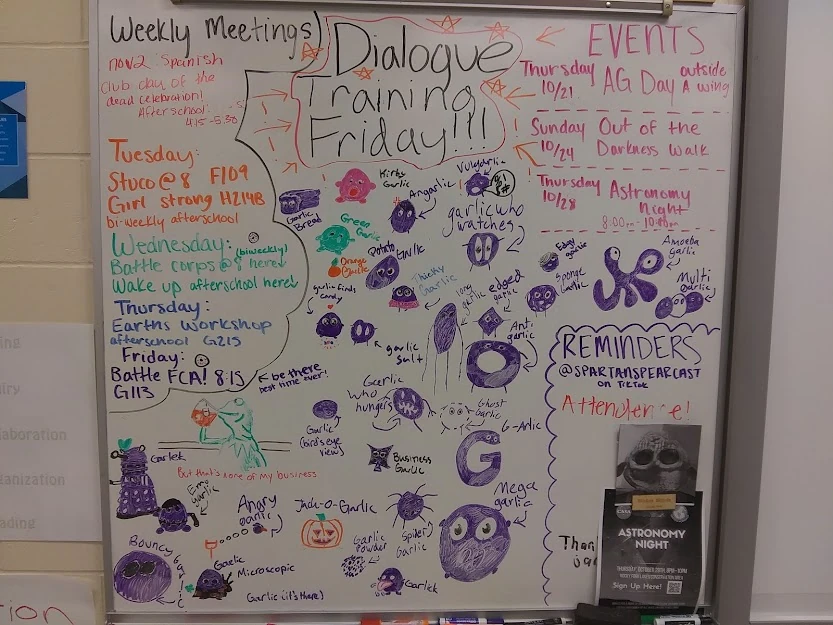 Weekly Meetings
nov2: Spanish
club day of the
dead celebration!
Afterschool:
4:15 - 5:30
Tuesday:
Stuco @ 8 F109
Girl strong H214B
bi-weekly afterschool
Wednesday: (biweekly)
Battle corps @ 8 here!
Wake up afterschool here!
Thursday:
Earths Workshop
afterschool G215
Friday:
Battle FCA! 8:15
G113
be there
best time ever!
Dialogue
Training
Friday!!!
EVENTS
Thursday
10/21
AG Day outside
A wing
Sunday
10/24
Out of the
Darkness Walk
Thursday
10/28
Astronomy
Night
8:00pm - 10:00pm
Kirby
Garlic
Garlic
Bread
Angarlic
Green
Garlic
Orange
Garlic
Potato
Garlic
garlic who
watches
Thicky
Garlic
garlic finds
candy
garlic
salt
long
garlic
edged
garlic
Edgy
garlic
Sponge
Garlic
Amoeba
garlic
Multi
Garlic
Anti
garlic
Garlic
Who
hungers
Ghost
Garlic
Garlic
(bird's eye
view)
Business
Garlic
G-Arlic
G
Garlek
But that's none of my business
Emo
Garlic
Angry
Garlic
Jack-O-Garlic
Spider
Garlic
Mega
garlic
Garlic
Powder
Bouncy
Garlic
Microscopic
Garlic (it's there)
Garlick
REMINDERS
@SPARTANSPEARCAST
on TikTok
Attendence!
ASTRONOMY
NIGHT
Sign Up Here!